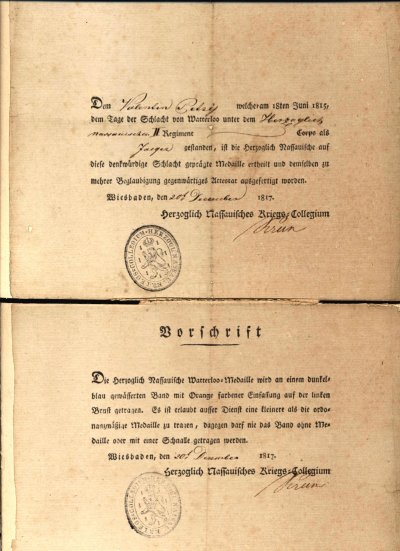 Dem Valentin welcher am 18ten Juni 1815,
dem Tage der Schlacht von Watterloo unter dem Herzoglich
nassauischen II Regiment Corps als
Jaeger gestanden, ist die Herzoglich Nassauische auf
diese denkwürdige Schlacht geprägte Medaille ertheilt und demselben zu
mehrer Beglaubigung gegenwärtiges Attestat ausgefertigt worden.
Wiesbaden, den 20t December 1817.
Herzoglich Nassauisches Kriegs-Collegium
Vorschrift
Die Herzoglich Nassauische Watterloo-Medaille wird an einem dunkel-
blau gewässerten Band mit Orange farbener Einfassung auf der linken
Brust getragen. Es ist erlaubt ausser Dienst eine kleinere als die ordo-
nanzmäßige Medaille zu tragen, dagegen darf nie das Band ohne Me-
daille oder mit einer Schnalle getragen werden.
Wiesbaden, den 20t December 1817.
Herzoglich Nassauisches Kriegs-Collegium